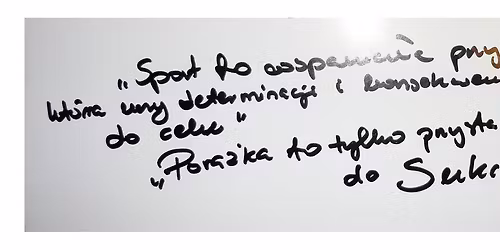 „Sport to wspaniała przy
która uczy determinacji i konsekwen
do celu"
„Porażka to tylko przysta
do Sukc